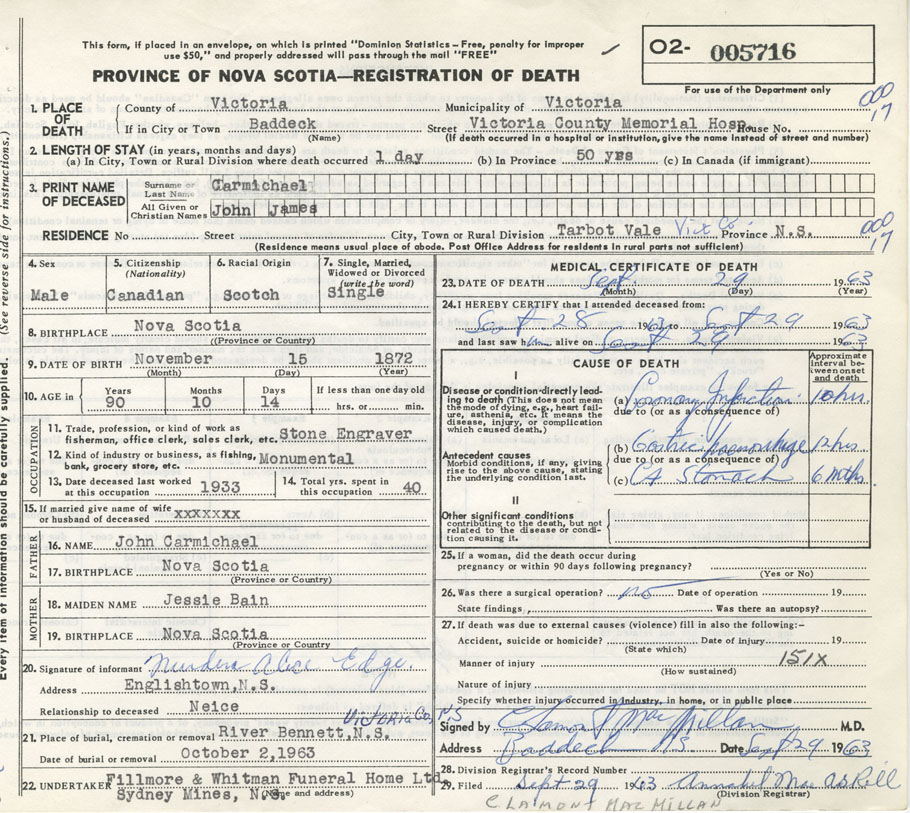 This form, if placed in an envelope, on which is printed "Dominion Statistics – Free, penalty for improper
use $50," and properly addressed will pass through the mail "FREE"
O2- 005716
PROVINCE OF NOVA SCOTIA—REGISTRATION OF DEATH
For use of the Department only
1. PLACE OF DEATH County of Victoria Municipality of Victoria 000 17
If in City or Town Baddeck (Name) Street Victoria County Memorial Hosp. House No.
(If death occurred in a hospital or institution, give the name instead of street and number)
2. LENGTH OF STAY (in years, months and days)
(a) In City, Town or Rural Division where death occurred 1 day (b) In Province 50 yrs (c) In Canada (if immigrant)
3. PRINT NAME OF DECEASED Surname or Last Name Carmichael
All Given or Christian Names John James
RESIDENCE No Street City, Town or Rural Division Tarbot Vale Vict Co. Province N.S. 000 17
(Residence means usual place of abode. Post Office Address for residents in rural parts not sufficient)
4. Sex Male
5. Citizenship (Nationality) Canadian
6. Racial Origin Scotch
7. Single, Married, Widowed or Divorced (write the word) Single
8. BIRTHPLACE Nova Scotia
(Province or Country)
9. DATE OF BIRTH November 15 1872
(Month) (Day) (Year)
10. AGE in Years 90 Months 10 Days 14 If less than one day old hrs. or min.
OCCUPATION
11. Trade, profession, or kind of work as
fisherman, office clerk, sales clerk, etc. Stone Engraver
12. Kind of industry or business, as fishing,
bank, grocery store, etc. Monumental
13. Date deceased last worked
at this occupation 1933
14. Total yrs. spent in this occupation 40
15. If married give name of wife
or husband of deceased xxxxxxx
FATHER
16. NAME John Carmichael
17. BIRTHPLACE Nova Scotia
(Province or Country)
MOTHER
18. MAIDEN NAME Jessie Bain
19. BIRTHPLACE Nova Scotia
(Province or Country)
20. Signature of informant Alice Edge
Address Englishtown, N.S.
Relationship to deceased Neice
Victoria Co, NS
21. Place of burial, cremation or removal River Bennett, N.S.
Date of burial or removal October 2, 1963
22. UNDERTAKER Fillmore & Whitman Funeral Home Ltd.
Sydney Mines, N.S.
(Name and address)
MEDICAL CERTIFICATE OF DEATH
23. DATE OF DEATH Sept. 29 1963
(Month) (Day) (Year)
24. I HEREBY CERTIFY that I attended deceased from:
Sept 28 1963 to Sept 29 1963
and last saw him alive on Sept 29 1963
CAUSE OF DEATH
Approximate interval between onset and death
I
Disease or condition directly leading to death (This does not mean the mode of dying, e.g., heart failure, asthenia, etc. It means the disease, injury, or complication which caused death.)
(a) Coronary Infarction 10 hrs.
due to (or as a consequence of)
Antecedent causes
Morbid conditions, if any, giving rise to the above cause, stating the underlying condition last.
(b) Gastric haemorrhage 12 hrs
due to (or as a consequence of)
(c) CA Stomach 6 mths.
II
Other significant conditions
contributing to the death, but not related to the disease or condition causing it.
25. If a woman, did the death occur during
pregnancy or within 90 days following pregnancy?
(Yes or No)
26. Was there a surgical operation? no Date of operation 19
State findings Was there an autopsy?
27. If death was due to external causes (violence) fill in also the following:-
Accident, suicide or homicide? Date of injury 19
(State which)
Manner of injury 151X
(How sustained)
Nature of injury
Specify whether injury occurred in Industry, in home, or in public place
Signed by Clamont MacMillan M.D.
Address Baddeck NS Date Sept 29 1963
28. Division Registrar's Record Number
29. Filed Sept 29 1963 Annabel
(Division Registrar)
CLAMONT MACMILLAN
Every item of information should be carefully supplied. (See reverse side for instructions.)